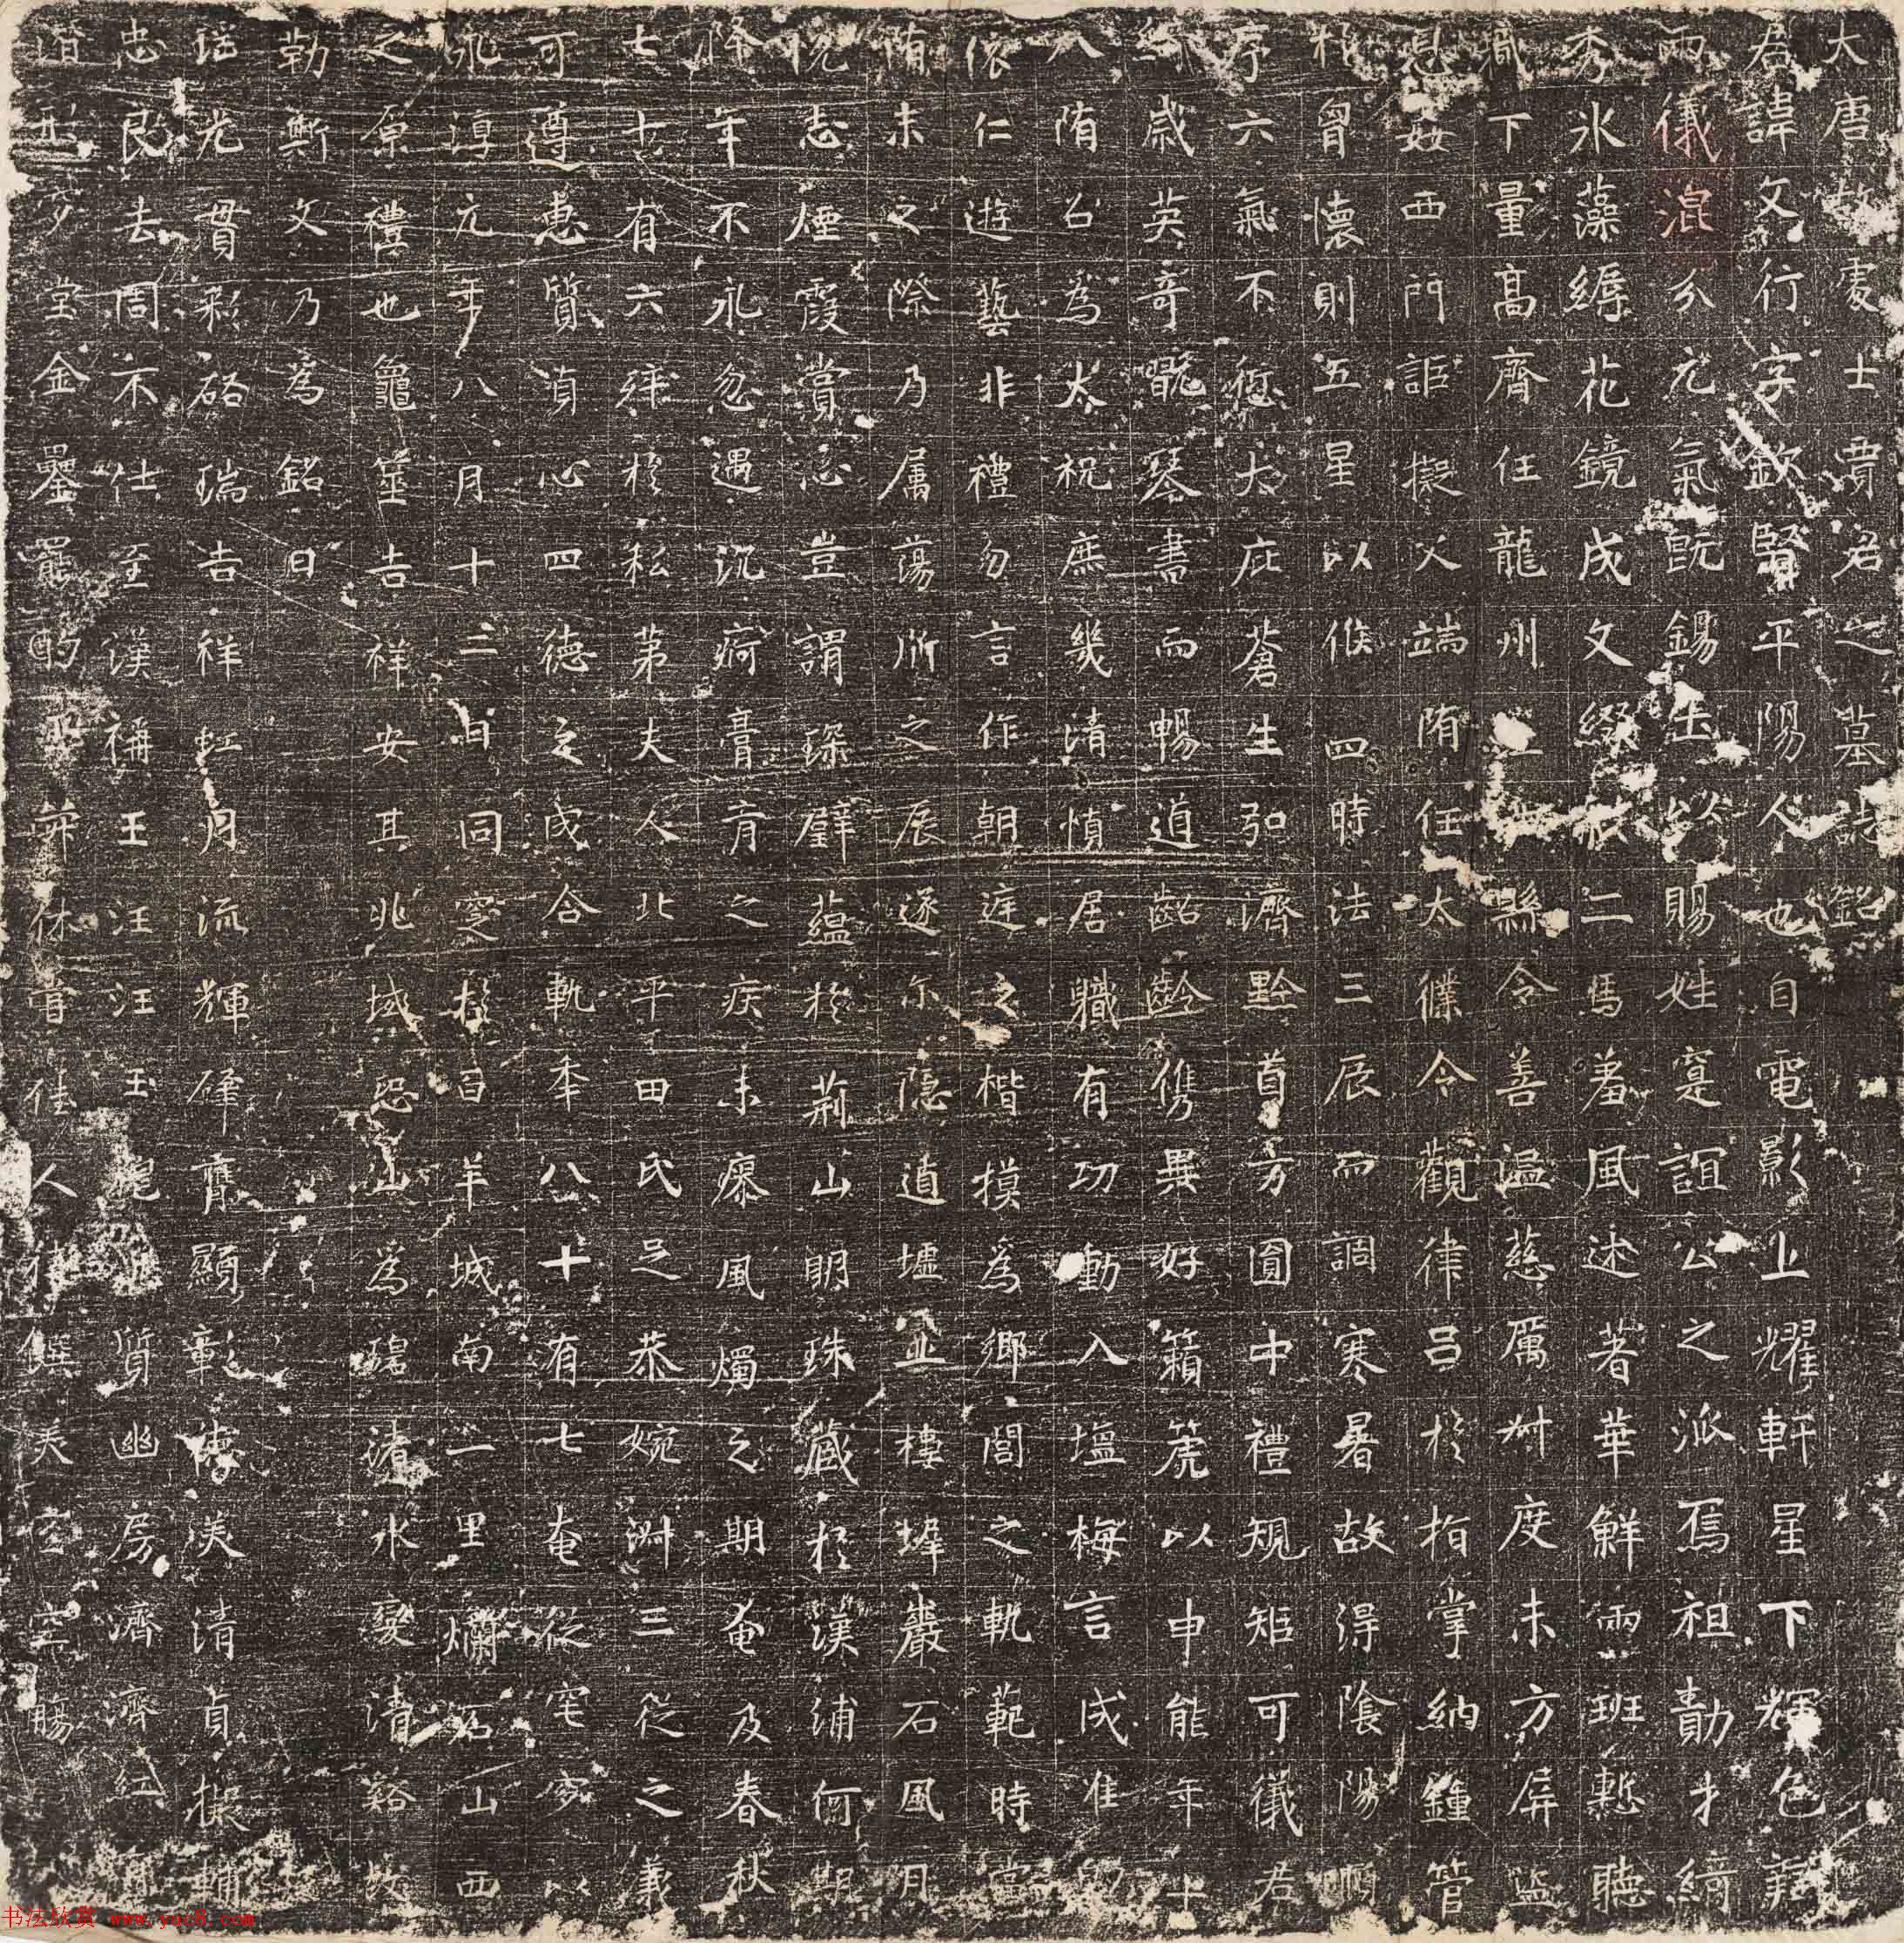 大唐故處士賈君之墓誌銘
君諱文行字欽賢平陽人也自電影上耀軒星下輝色
兩儀混分元氣既錫土賜姓寔誼公之派焉祖勣才綺
秀水藻縟花鏡成文綴二馬羞風述著華鮮兩班慙聽
職下量高齊任龍州縣令善溫慈厲村度未方屏
息姦西門詎擬父端隋任太僕令觀律呂於指掌納鍾管
於胷懷則五星以候四時法三辰而調寒暑故得陰陽順
序六氣不愆大庇蒼生弘濟黔首方圓中禮規矩可儀君
歲英奇琴書而暢道齠齡儁異好籍以申能年十
八隋召為太祝庶幾清慎居職有功動入塩梅言成准
依仁遊藝非禮勿言作朝廷之楷摸為鄉閭之軌範時當
隋末之際乃属蕩所之辰遂尓隱遁墟並棲墀巖石風月
悅志煙霞賞豈謂琛璧蘊於荊山明珠藏於漢浦何期
降年不永忽遇沉痾膏肓之疾未瘳風燭之期奄及春秋
七十有六殫於私第夫人北平田氏足恭婉淑三從之義
可遵惠質心四德之成合軌年八十有七奄從窀穸以
永淳元年八月十三日同窆於百羊城南一里爛石山西
之原禮也龜筮吉祥安其兆域恐山為碧渚水變清谿故
勒斯文乃為銘曰
瑤光貫彩硌瑞吉祥虹月流輝肇膺顯彰清貞擬輔
忠良去周不仕至漢稱王汪汪玉質幽房濟濟紅
道堂金罍罷酌休嘗佳人饌空空觴
书法欣赏 www.yac8.com